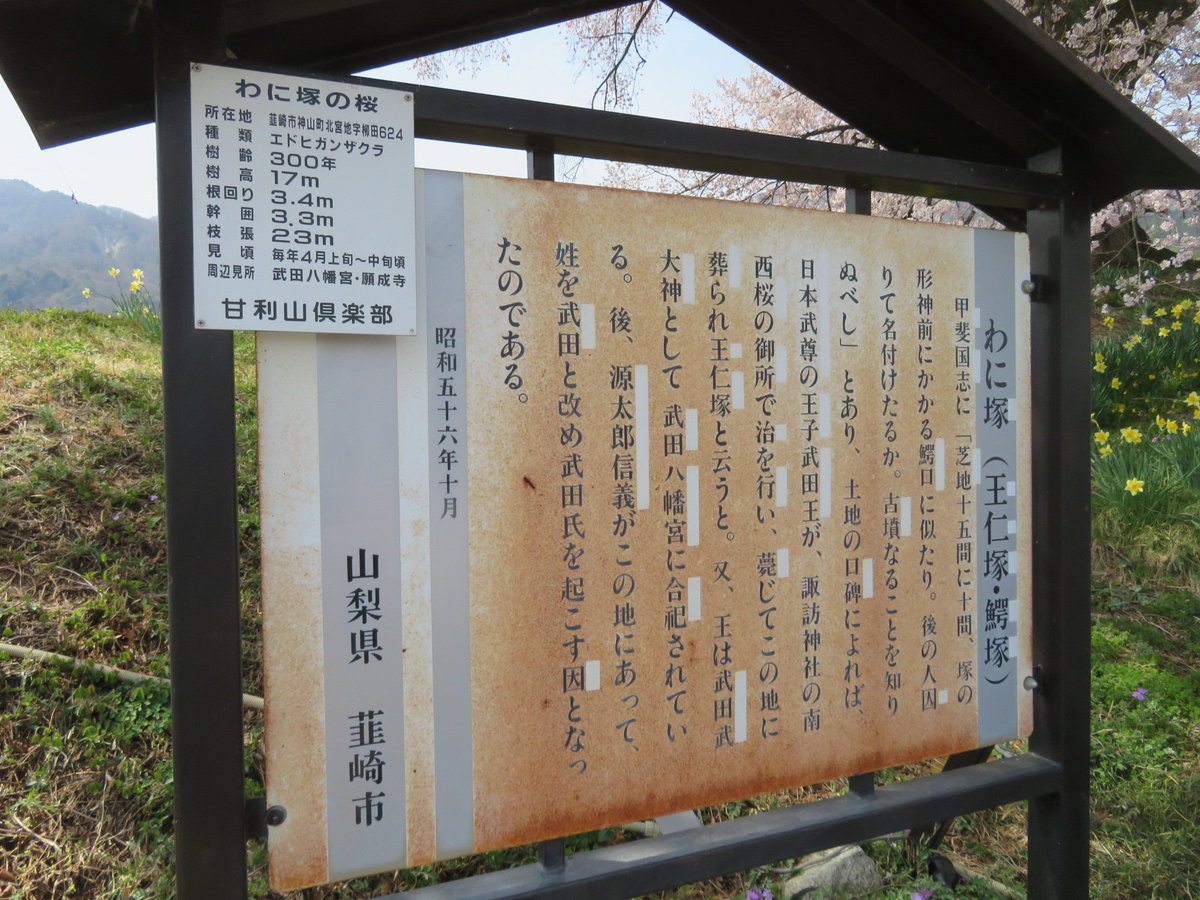 わに塚の桜
所在地 韮崎市神山町北宮地字柳田624
種類 エドヒガンザクラ
樹齢 300年
樹高 17m
根回り 3.4m
幹囲 3.3m
枝張 23m
見頃 毎年4月上旬～中旬頃
周辺見所 武田八幡宮・願成寺
甘利山倶楽部
わに塚（王仁塚・鰐塚）
甲斐国志に「芝地十五間に十間、塚の
形神前にかかる鰐口に似たり。後の人囚
りて名付けたるか。古墳なることを知り
ぬべし」とあり、土地の口碑によれば、
日本武尊の王子武田王が、諏訪神社の南
西桜の御所で治を行い、薨じてこの地に
葬られ王仁塚と云うと。又、王は武田武
大神として武田八幡宮に合祀されてい
る。後、源太郎信義がこの地にあって、
姓を武田と改め武田氏を起こす因となっ
たのである。
昭和五十六年十月
山梨県 韮崎市